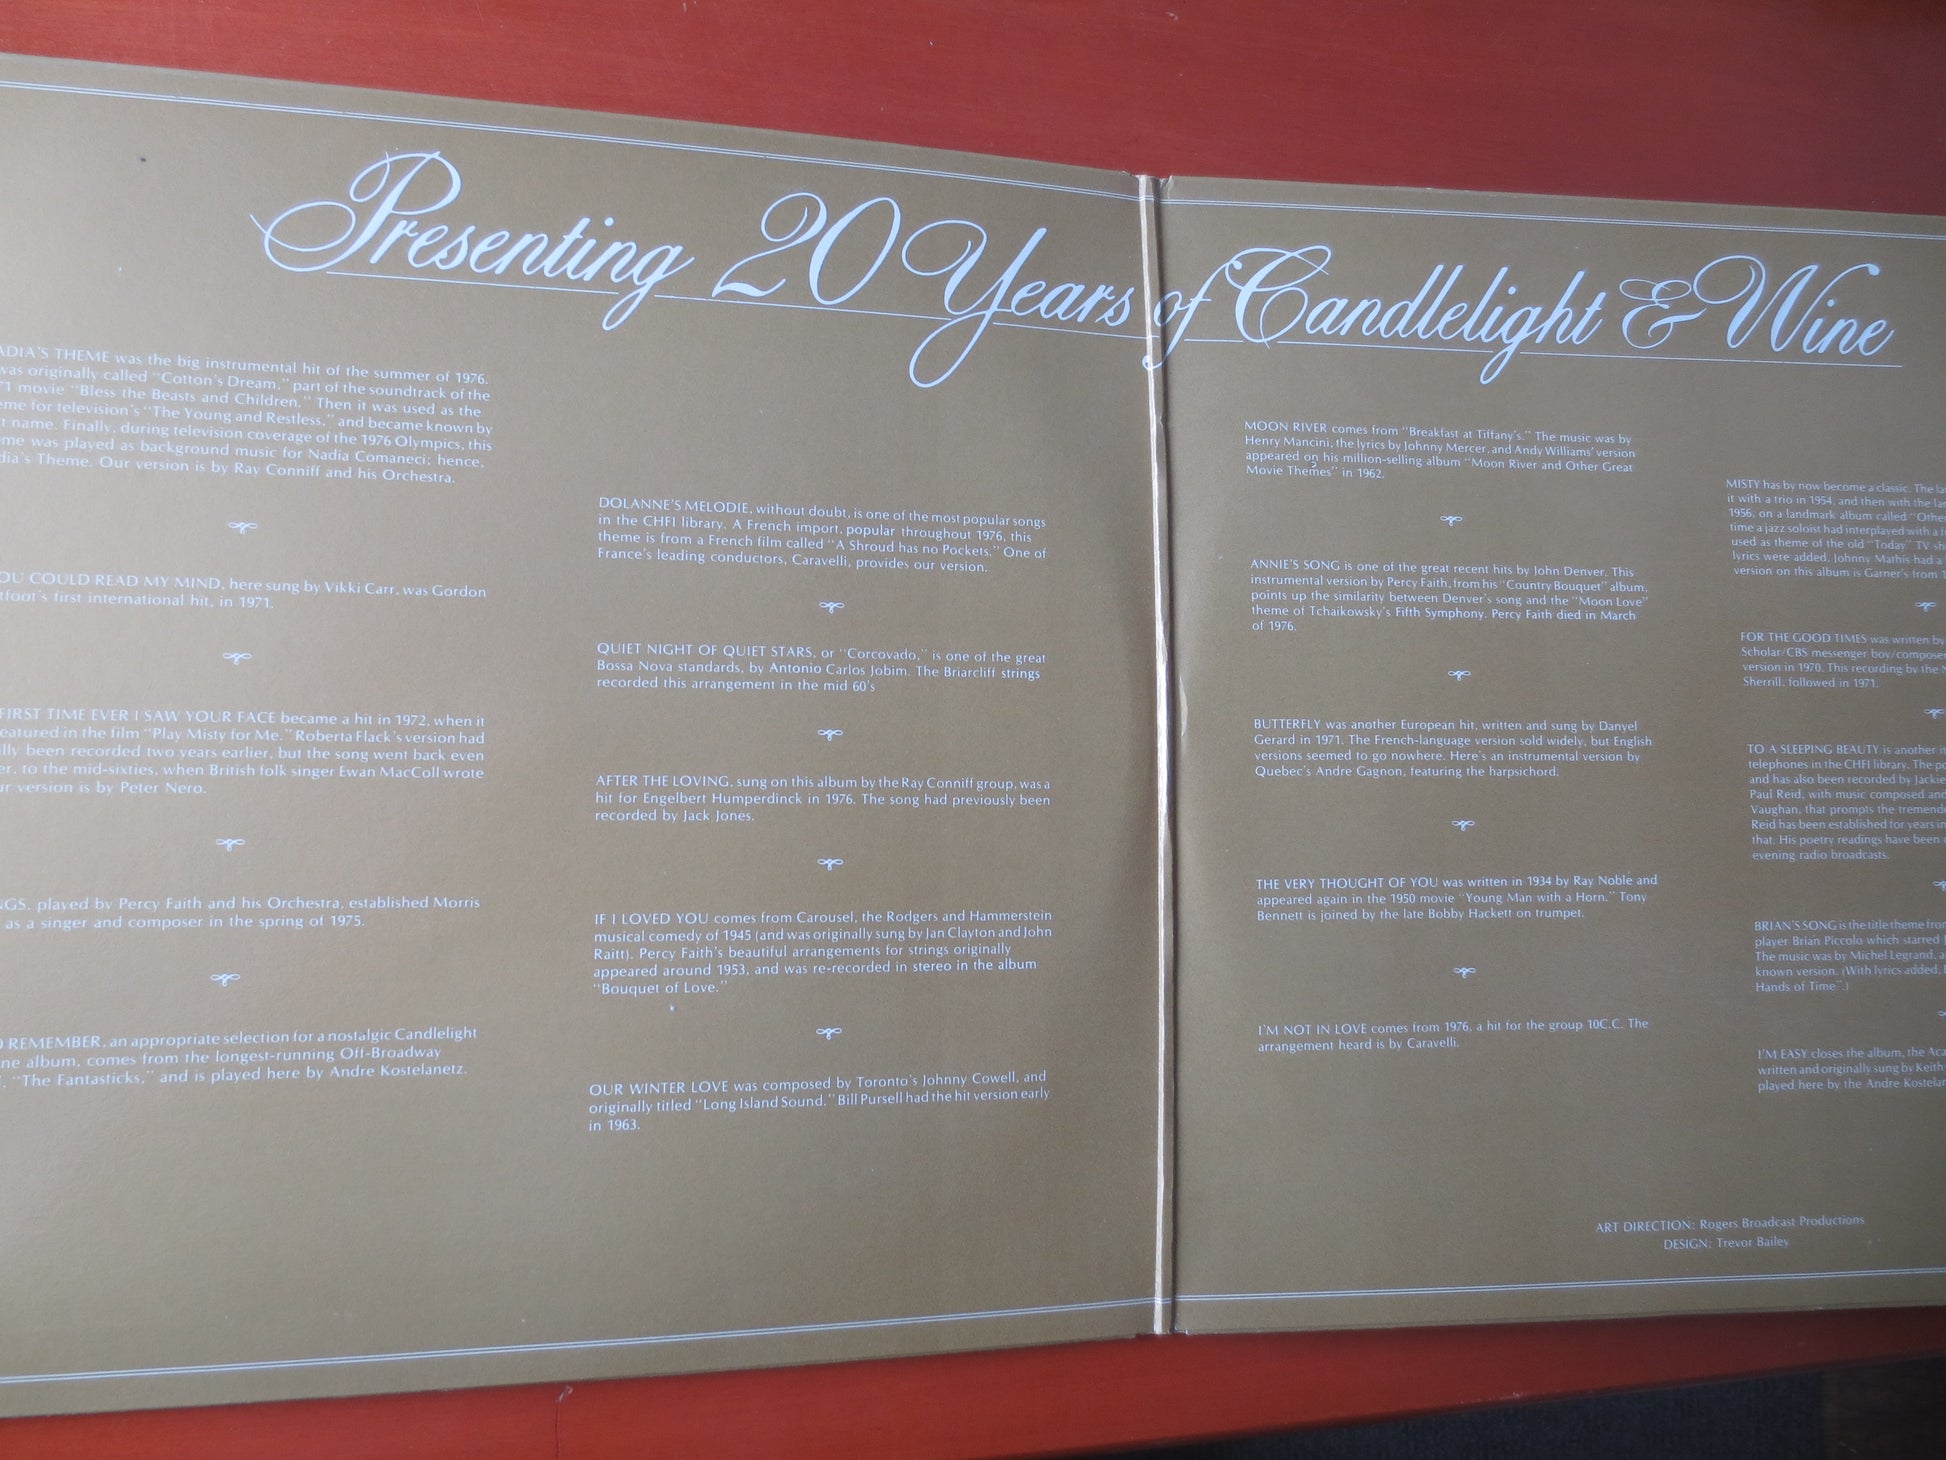 Presenting 20 Years of Candlelight & Wine
THEME was the big instrumental hit of the summer of 1976.
was originally called "Cotton's Dream," part of the soundtrack of the
movie "Bless the Beasts and Children." Then it was used as the
for television's "The Young and Restless," and became known by
name. Finally, during television coverage of the 1976 Olympics, this
was played as background music for Nadia Comaneci; hence,
Theme. Our version is by Ray Conniff and his Orchestra.
COULD READ MY MIND, here sung by Vikki Carr, was Gordon
first international hit, in 1971.
FIRST TIME EVER I SAW YOUR FACE became a hit in 1972, when it
in the film "Play Misty for Me." Roberta Flack's version had
been recorded two years earlier, but the song went back even
to the mid-sixties, when British folk singer Ewan MacColl wrote
version is by Peter Nero.
played by Percy Faith and his Orchestra, established Morris
as a singer and composer in the spring of 1975.
REMEMBER, an appropriate selection for a nostalgic Candlelight
album, comes from the longest-running Off-Broadway
"The Fantasticks," and is played here by Andre Kostelanetz.
DOLANNE'S MELODIE, without doubt, is one of the most popular songs
in the CHFI library. A French import, popular throughout 1976, this
theme is from a French film called "A Shroud has no Pockets." One of
France's leading conductors, Caravelli, provides our version.
QUIET NIGHT OF QUIET STARS, or "Corcovado," is one of the great
Bossa Nova standards, by Antonio Carlos Jobim. The Briarcliff strings
recorded this arrangement in the mid 60's
AFTER THE LOVING, sung on this album by the Ray Conniff group, was a
hit for Engelbert Humperdinck in 1976. The song had previously been
recorded by Jack Jones.
IF I LOVED YOU comes from Carousel, the Rodgers and Hammerstein
musical comedy of 1945 (and was originally sung by Jan Clayton and John
Raitt). Percy Faith's beautiful arrangements for strings originally
appeared around 1953, and was re-recorded in stereo in the album
"Bouquet of Love."
OUR WINTER LOVE was composed by Toronto's Johnny Cowell, and
originally titled "Long Island Sound." Bill Pursell had the hit version early
in 1963.
MOON RIVER comes from "Breakfast at Tiffany's." The music was by
Henry Mancini, the lyrics by Johnny Mercer, and Andy Williams' version
appeared on his million-selling album "Moon River and Other Great
Movie Themes" in 1962.
ANNIE'S SONG is one of the great recent hits by John Denver. This
instrumental version by Percy Faith, from his "Country Bouquet" album,
points up the similarity between Denver's song and the "Moon Love"
theme of Tchaikowsky's Fifth Symphony. Percy Faith died in March
of 1976.
BUTTERFLY was another European hit, written and sung by Danyel
Gerard in 1971. The French-language version sold widely, but English
versions seemed to go nowhere. Here's an instrumental version by
Quebec's Andre Gagnon, featuring the harpsichord.
THE VERY THOUGHT OF YOU was written in 1934 by Ray Noble and
appeared again in the 1950 movie "Young Man with a Horn." Tony
Bennett is joined by the late Bobby Hackett on trumpet.
I'M NOT IN LOVE comes from 1976, a hit for the group 10C.C. The
arrangement heard is by Caravelli.
MISTY has by now become a classic. The
it with a trio in 1954, and then with the
1956, on a landmark album called
time a jazz soloist had interplayed with a
used as theme of the old "Today" TV
lyrics were added, Johnny Mathis had a
version on this album is Garner's from
FOR THE GOOD TIMES was written by
Scholar/CBS messenger boy/composer
version in 1970. This recording by the
Sherrill, followed in 1971.
TO A SLEEPING BEAUTY is another
telephones in the CHFI library. The
and has also been recorded by Jackie
Paul Reid, with music composed and
Vaughan, that prompts the
Reid has been established for years in
that. His poetry readings have been
evening radio broadcasts.
BRIAN'S SONG is the title theme from
player Brian Piccolo which starred
The music was by Michel Legrand,
known version. (With lyrics added,
Hands of Time".)
I'M EASY closes the album, the
written and originally sung by Keith
played here by the Andre
ART DIRECTION: Rogers Broadcast Productions
DESIGN: Trevor Bailey